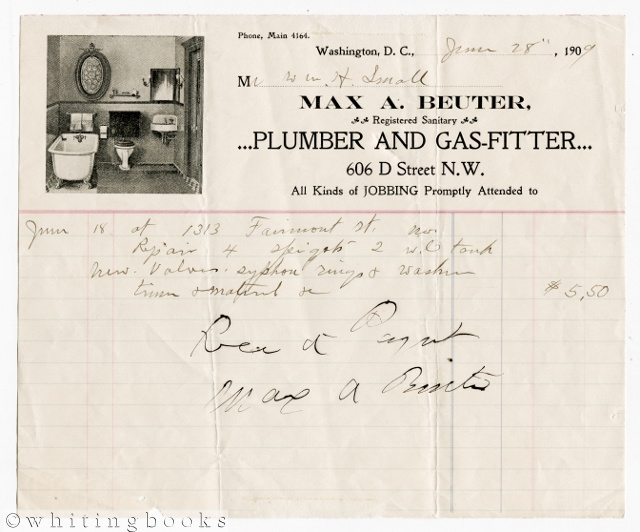 Phone, Main 4164.
Washington, D. C., June 28", 1909
Mr Wm. H. Small
MAX A. BEUTER,
Registered Sanitary
...PLUMBER AND GAS-FITTER...
606 D Street N.W.
All Kinds of JOBBING Promptly Attended to
June 18 at 1313 Fairmont St. NW.
Repair 4 spigots 2 w.c tank
New. Valves. syphon rings & washer
time & material &c
$5,50
Rec'd Paymt
Max A Beuter
©whitingbooks